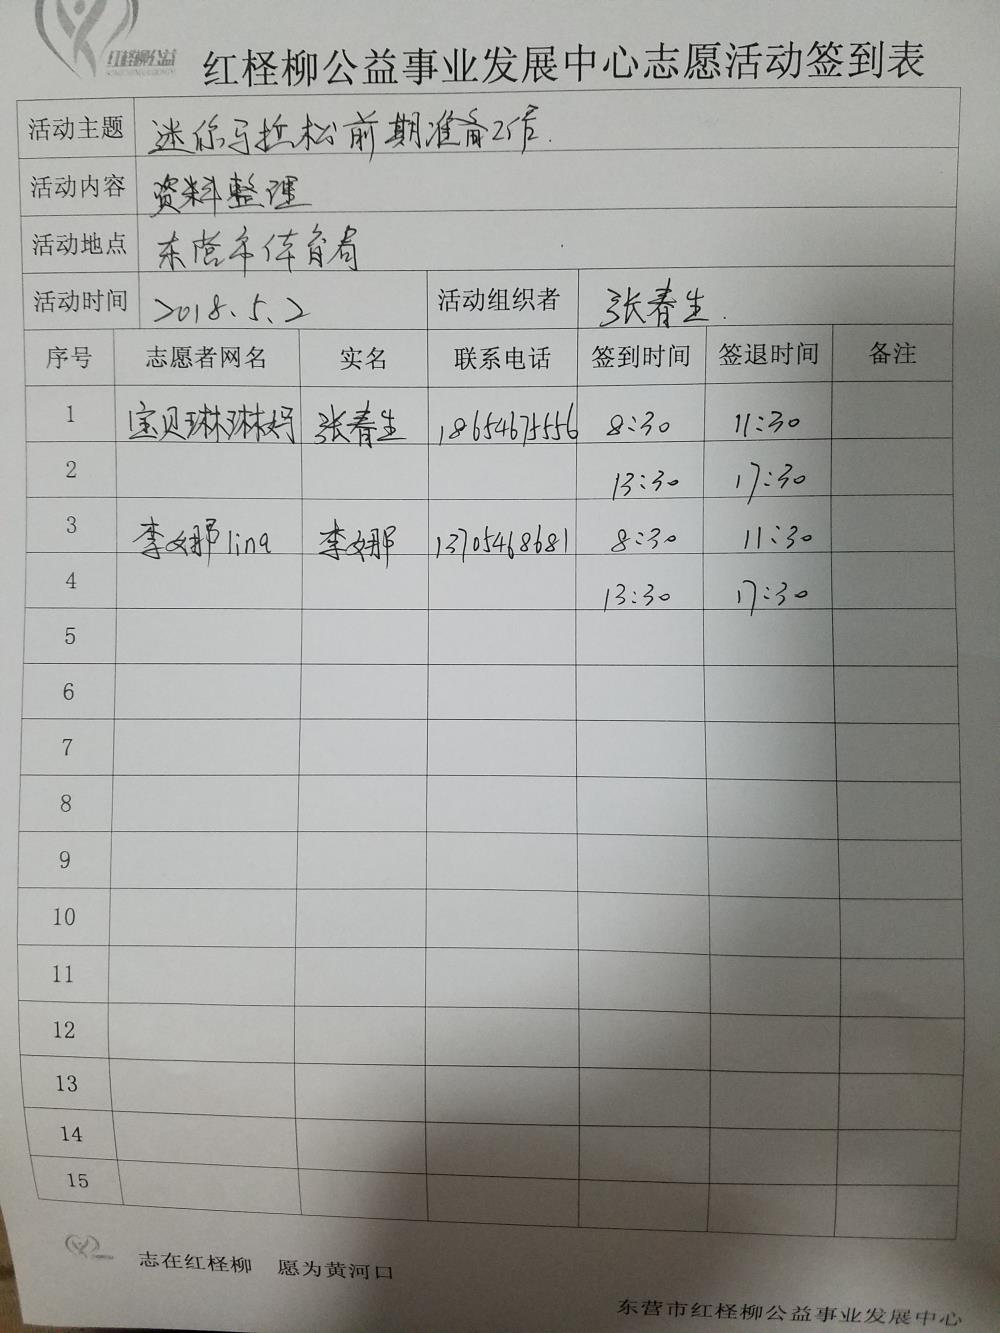 红柽柳公益
红柽柳公益事业发展中心志愿活动签到表
活动主题 迷你马拉松前期准备工作.
活动内容 资料整理
活动地点 东营市体育局
活动时间 2018.5.2 活动组织者 张春生.
序号 志愿者网名 实名 联系电话 签到时间 签退时间 备注
1 宝贝琳琳妈 张春生 18654675556 8:30 11:30
2 13:30 17:30
3 李娜lina 李娜 13705468681 8:30 11:30
4 13:30 17:30
5
6
7
8
9
10
11
12
13
14
15
志在红柽柳 愿为黄河口
东营市红柽柳公益事业发展中心